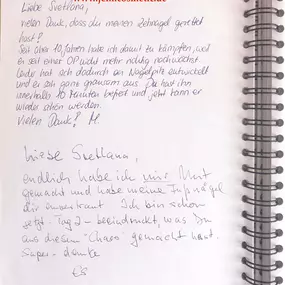 Liebe Svetlana,
vielen Dank, dass du meinen Zehnagel gerettet
hast!
Seit über 10 Jahren habe ich damit zu kämpfen, weil
er seit einer OP nicht mehr richtig nachwächst.
Leider hat sich dadurch ein Nagelpilz entwickelt
und er sah ganz grausam aus. Du hast ihn
innerhalb 10 Minuten befreit und jetzt kann er
wieder schön werden.
Vielen Dank! M.
Liebe Svetlana,
endlich habe ich mir Mut
gemacht und habe meine Fußnägel
dir anvertraut. Ich bin schon
jetzt - Tag 2 - beeindruckt, was Du
aus diesem "Chaos" gemacht hast.
Super - danke